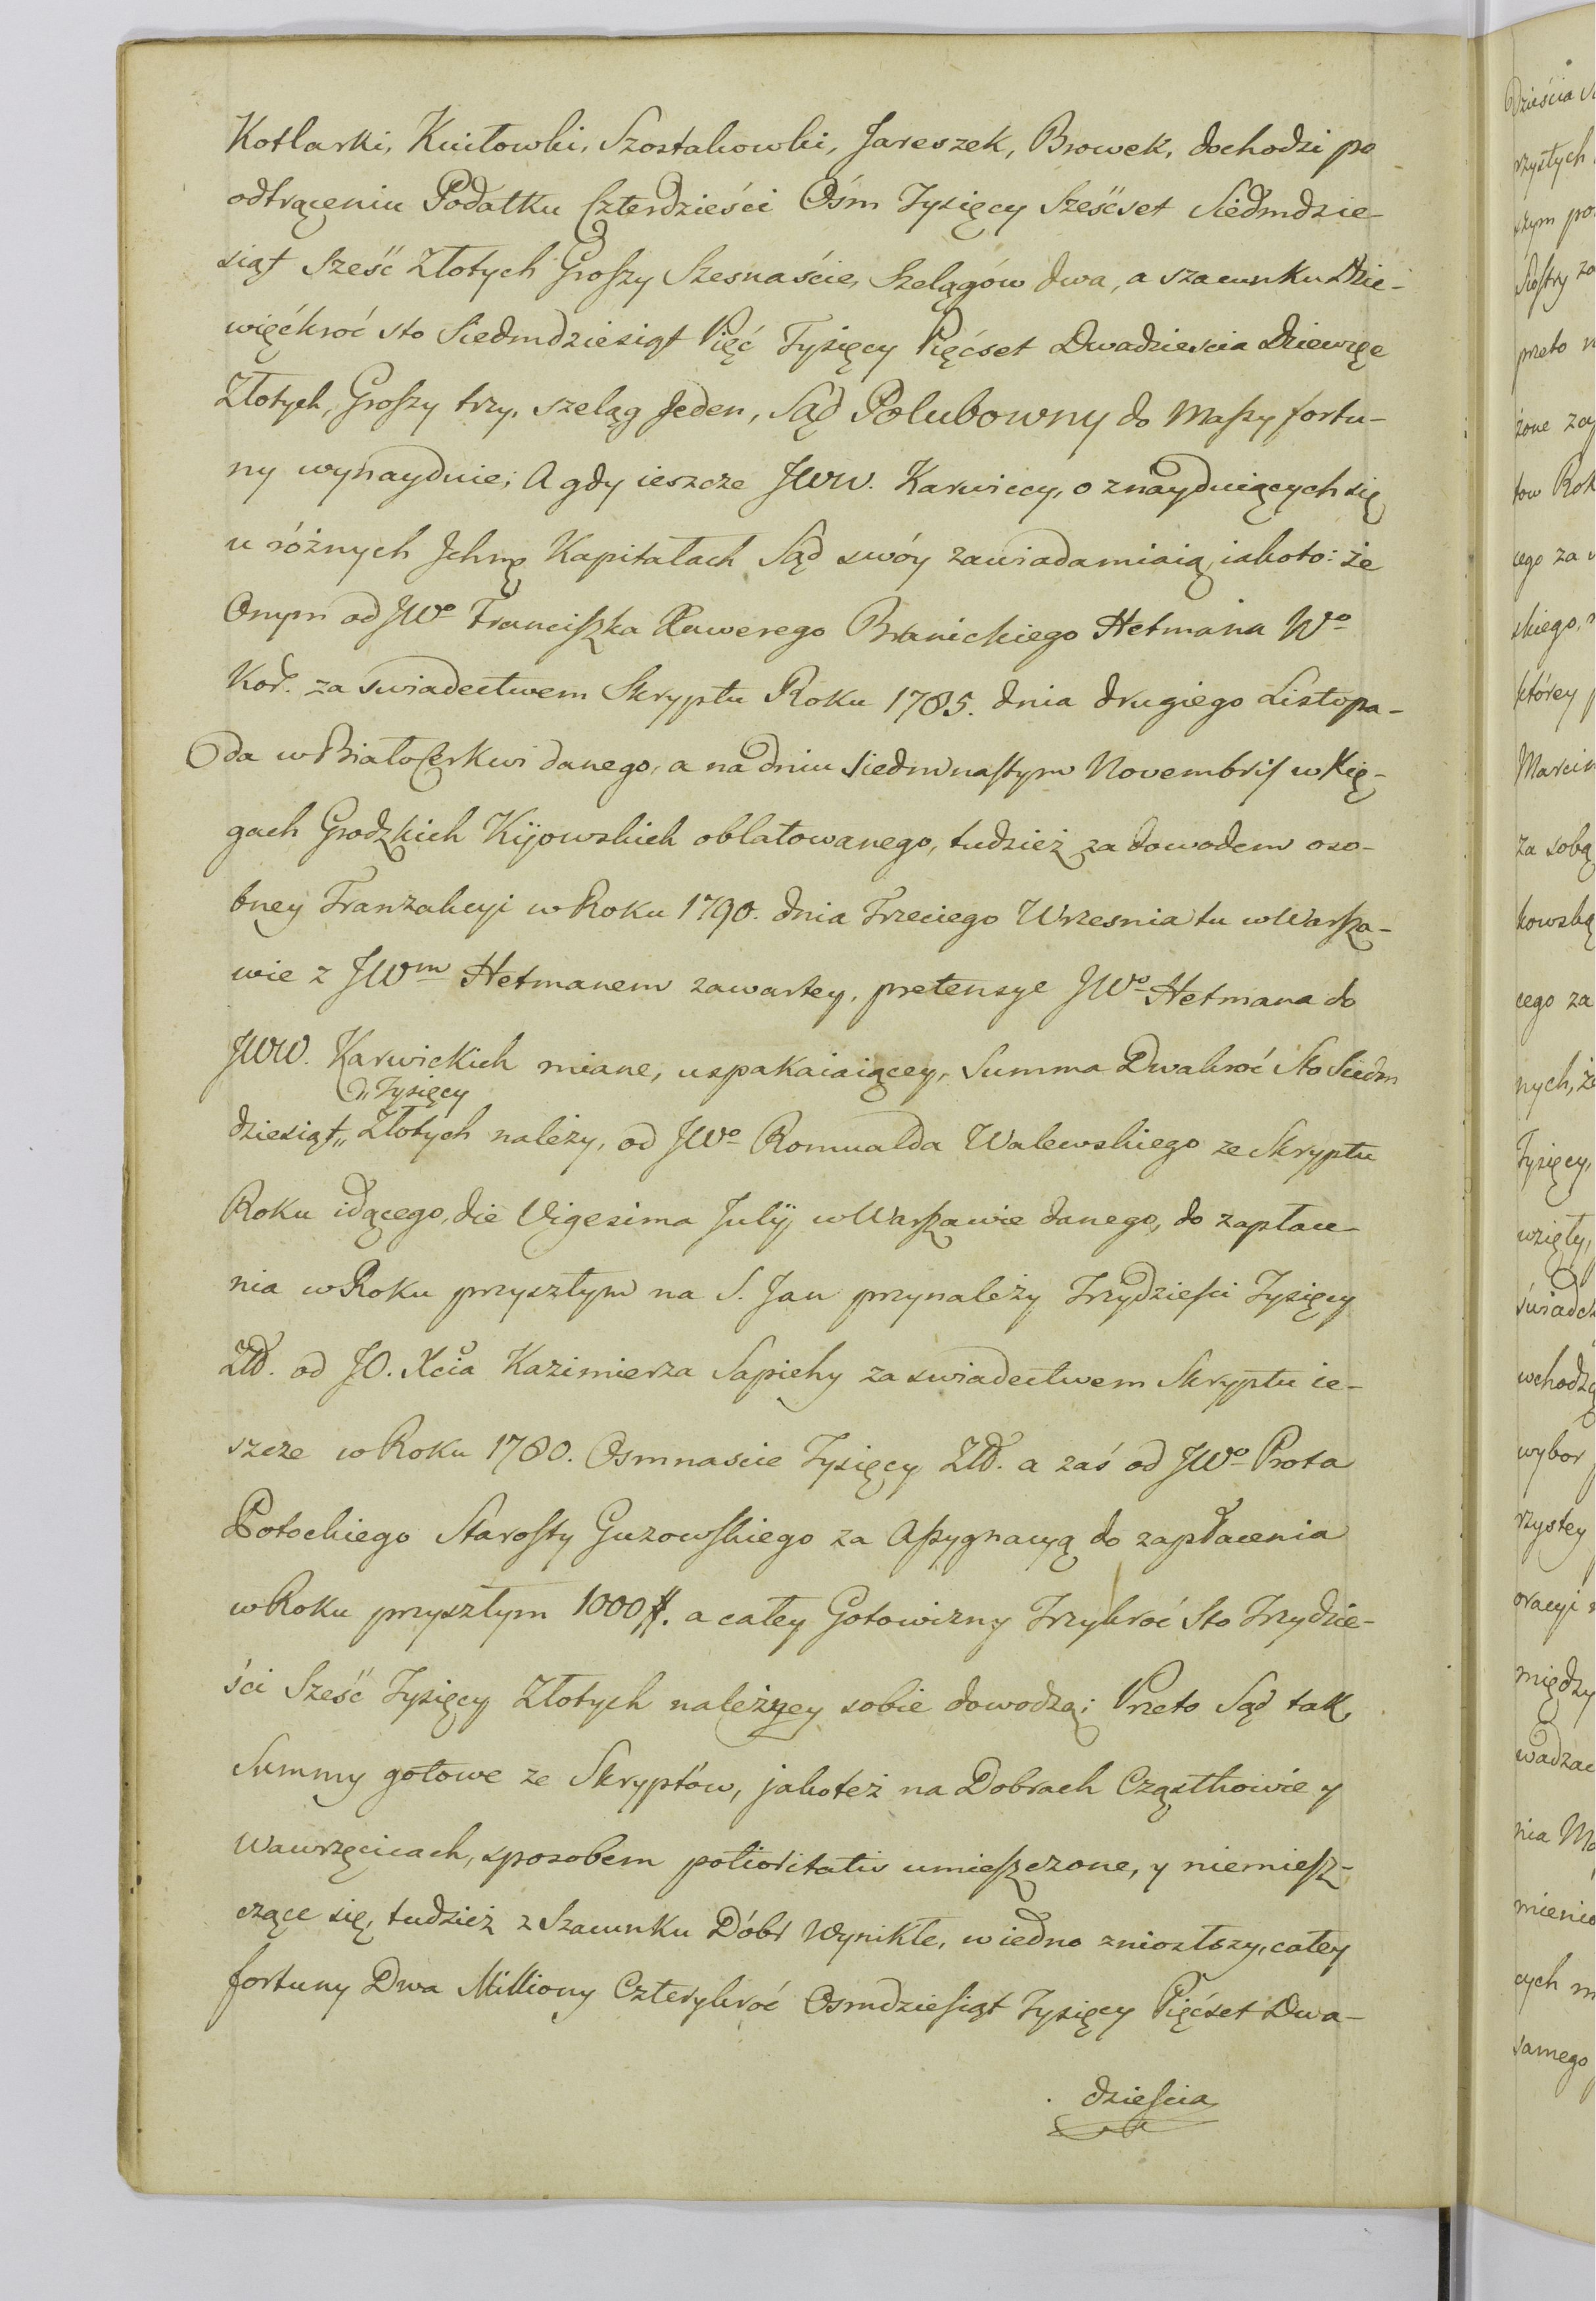 Kotlarki, Kuitowki, Szostakowki, Jareszek, Browek, dochodzi po
odtrąceniu Podatku Czterdzieści Ośm Tysięcy Sześćset Siedmdzie-
siąt Sześć Złotych Groszy Szesnaście, Szelągów dwa, a szacunku Dzie-
więćkroć sto Siedmdziesiąt Pięć Tysięcy Pięćset Dwadziescia Dziewięć
Złotych, Groszy trzy, szeląg Jeden, Sąd Polubowny do Massy fortu-
ny wynayduie; A gdy ieszcze JWW. Karwiccy, o znayduiących się
u różnych Ichmę Kapitałach Sąd swóy zawiadamiaią, iakoto: że
Onym od JWo Franciszka Xawerego Branickiego Hetmana Wo
Kor. za swiadectwem Skryptu Roku 1785. dnia drugiego Listopa-
da w BiałoCerkwi danego, a na dniu siedmnastym Novembris w Xię-
gach Grodzkich Kijowskich oblatowanego, tudzież za dowodem oso-
bney Tranzakcyi w Roku 1790. dnia Trzeciego Wrzesnia tu w Warsza-
wie z JWm Hetmanem zawartey, pretensye JWo Hetmana do
JWW. Karwickich miane, uspakaiaiącey, Summa Dwakroć Sto Siedm
„Tysięcy
dziesiąt„ Złotych należy, od JWo Romualda Walewskiego ze Skryptu
Roku idącego, die Vigesima Julij w Warszawie danego, do zapłace-
nia w Roku przyszłym na S. Jan przynależy Trzydzieści Tysięcy
Złł. od JO. Xcia Kazimierza Sapiehy za swiadectwem Skryptu ie-
szcze w Roku 1780. Osmnascie Tysięcy Złł. a zaś od JWo Prota
Potockiego Starosty Guzowskiego za Assygnacyą do zapłacenia
w Roku przyszłym 1000 #. a całey Gotowizny Trzykroć Sto Trzydzie-
ści Sześć Tysięcy Złotych należney sobie dowodzą; Przeto Sąd tak
Summy gotowe ze Skryptów, jakoteż na Dobrach Cząstkowie y
Wawrzęcicach, sposobem potioritatis umieszczone, y niemiesz-
czące się, tudzież z Szacunku Dóbr Wynikłe, w iedno zniosłszy, całey
fortuny Dwa Milliony Czterykroć Osmdziesiąt Tysięcy Pięćset Dwa-
dziescia